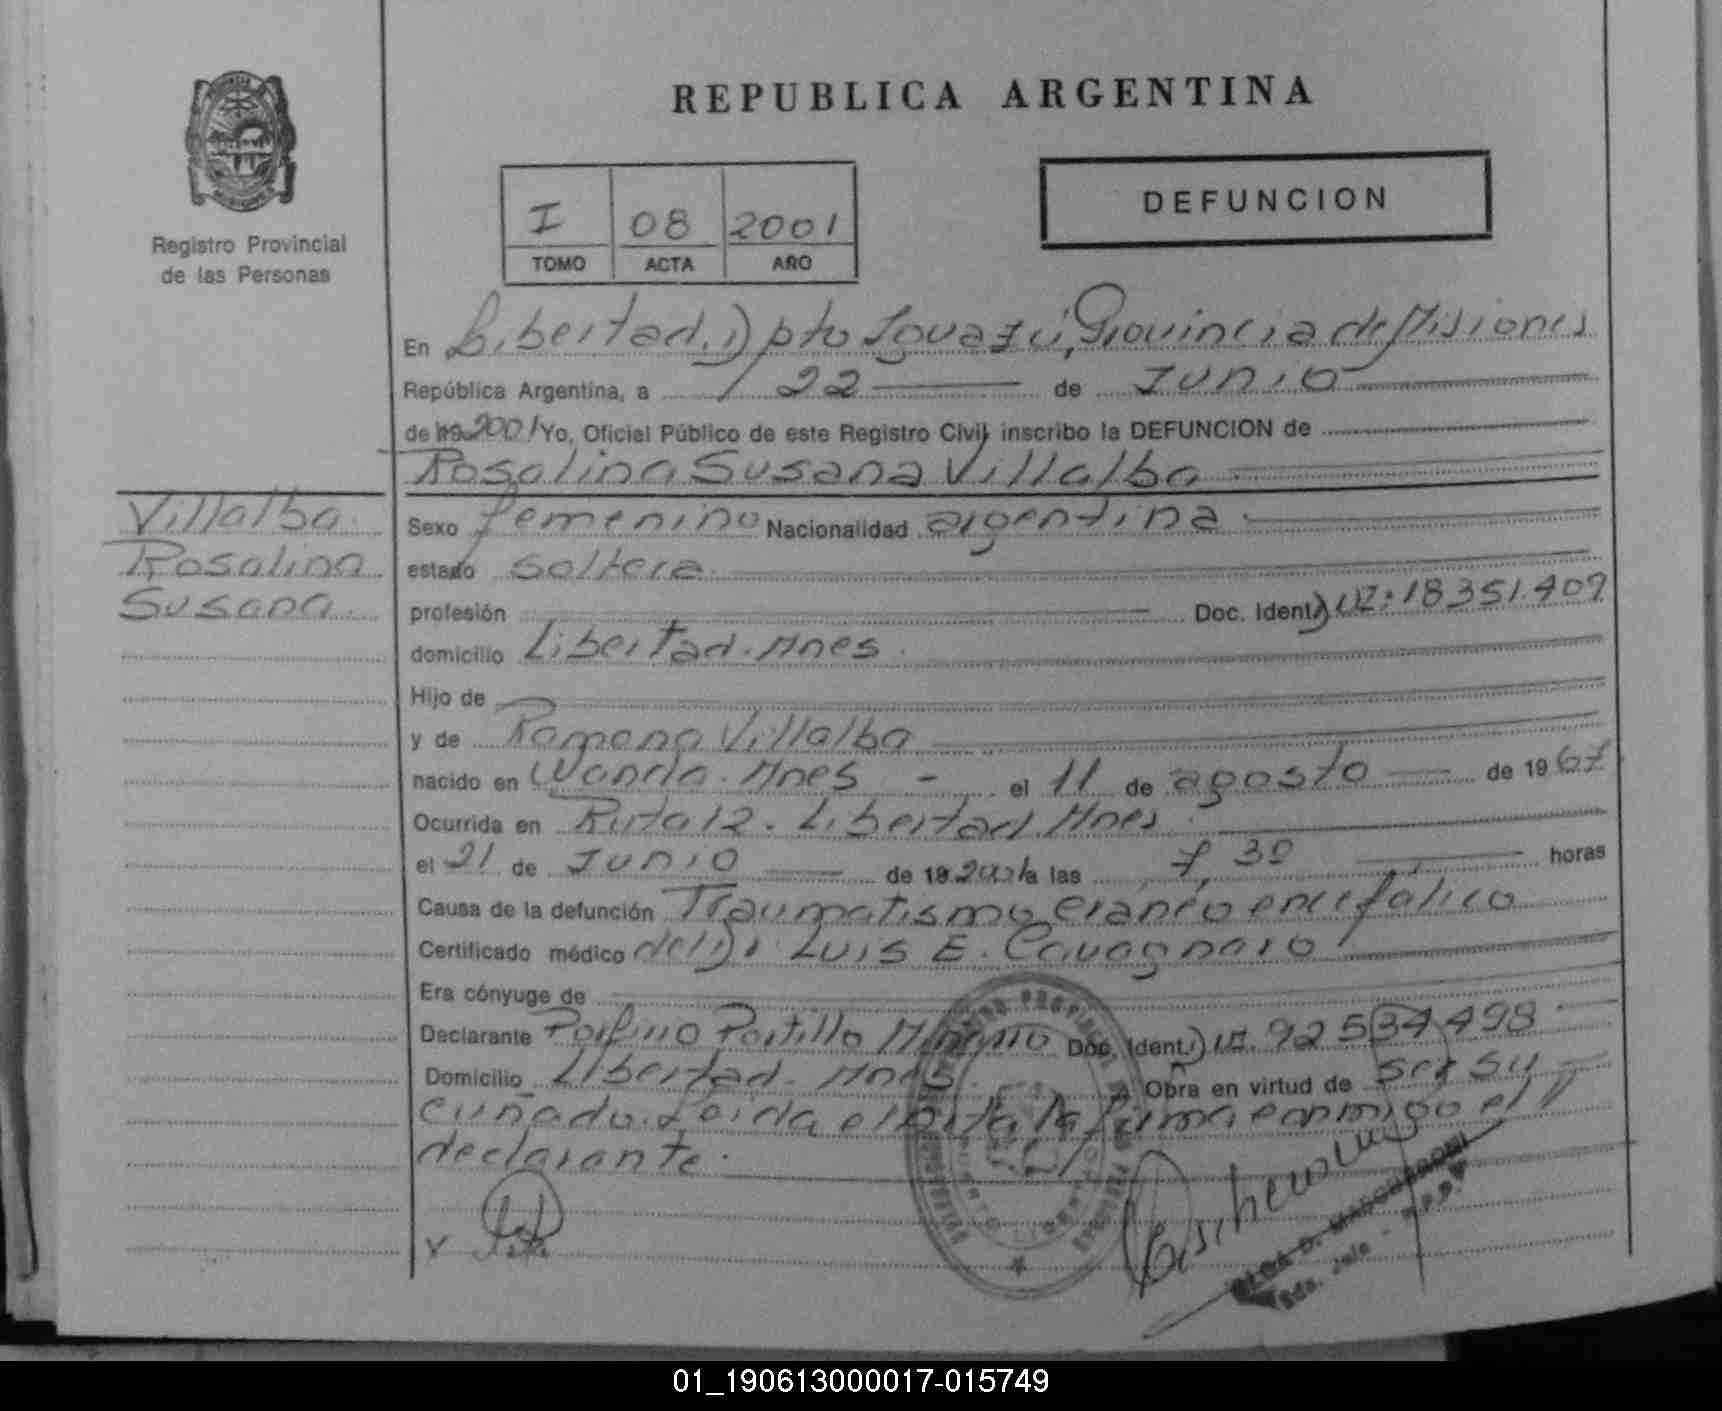 REPUBLICA ARGENTINA
DEFUNCION
I 08 2001
TOMO ACTA AÑO
Registro Provincial
de las Personas
En Libertad, Dpto Iguazú, Provincia de Misiones
República Argentina, a 22 de Junio
de 19 2001 Yo, Oficial Público de este Registro Civil inscribo la DEFUNCION de
Rosalina Susana Villalba
Villalba
Rosalina
Susana
Sexo femenino Nacionalidad argentina
estado soltera
profesión Doc. Ident. DNI: 18351.409
domicilio Libertad. Mnes
Hijo de
y de Ramona Villalba
nacido en Wanda. Mnes - el 11 de agosto de 19 67
Ocurrida en Ruta 12. Libertad Mnes
el 21 de Junio de 19 2001 a las 7,30 horas
Causa de la defunción Traumatismo craneo encefálico
Certificado médico del Dr Luis E. Cavagnaro
Era cónyuge de
Declarante Porfirio Portillo Doc. Ident. DNI. 92534498
Domicilio Libertad - Mnes Obra en virtud de ser su
cuñado. Leida el acta la firma conmigo el
declarante.
x
01_190613000017-015749